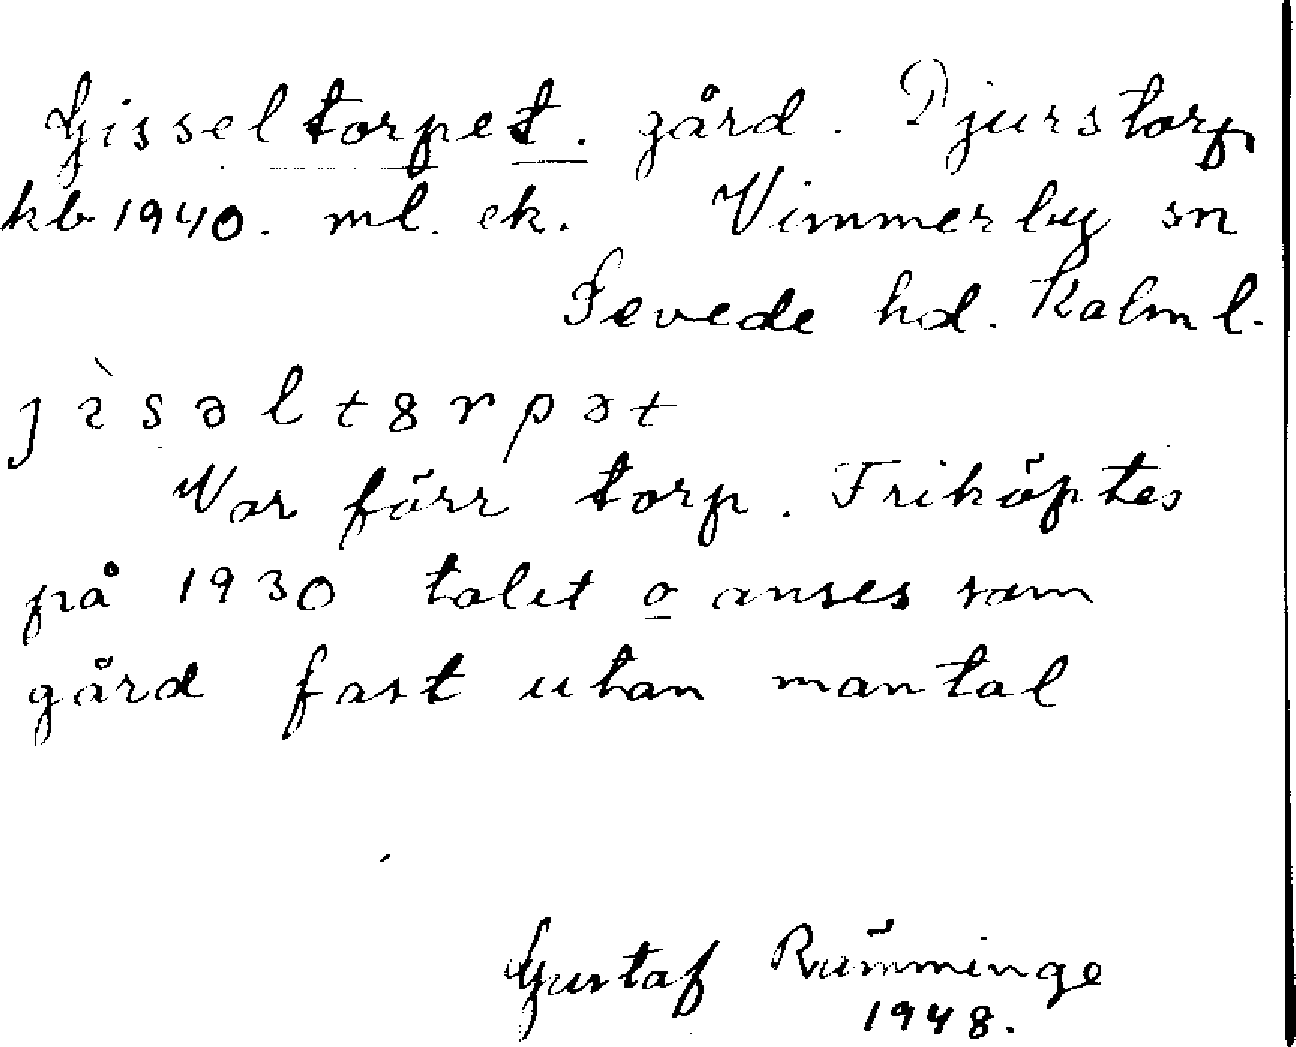 Gisseltorpet. gård. Djurstorp
kb 1940. ml. ek. Vimmerby sn
Sevede hd. Kalm l.
jìsəltɞrpət
Var förr torp. Friköptes
på 1930 talet o anses som
gård fast utan mantal
Gustaf Rumminge
1948.